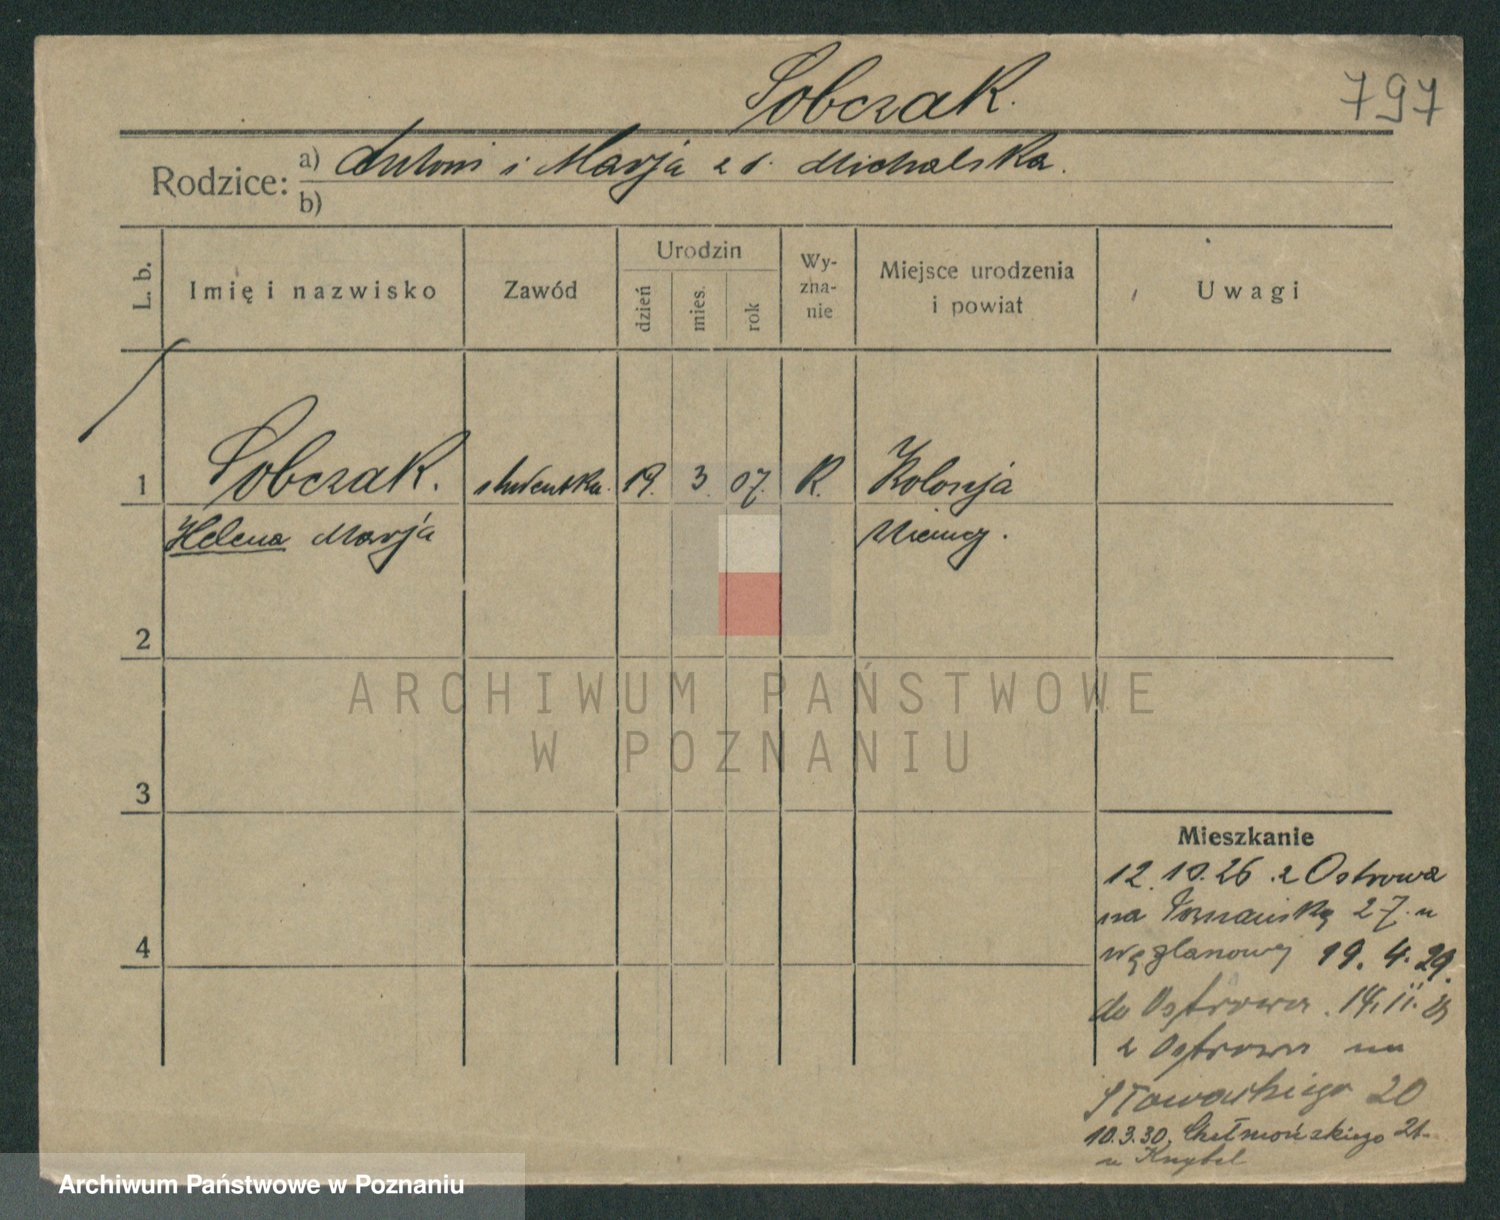 Sobczak.
797
Rodzice: a) Antoni i Marja z d. Michalska.
b)
L. b.
Imię i nazwisko
Zawód
Urodzin
dzień
mies.
rok
Wy-
zna-
nie
Miejsce urodzenia
i powiat
Uwagi
1 Sobczak. studentka. 19. 3. 07. R. Kolonja
Helena Marja Niemcy.
2
3
4
ARCHIWUM PAŃSTWOWE
W POZNANIU
Mieszkanie
12.10.26 z Ostrowa
na Poznańską 27. u
19. 4. 29.
do Ostrowa. 14. II.
z Ostrowa na
Słowackiego 20
10.3.30. Chełmońskiego 21.
u Knybel
Archiwum Państwowe w Poznaniu